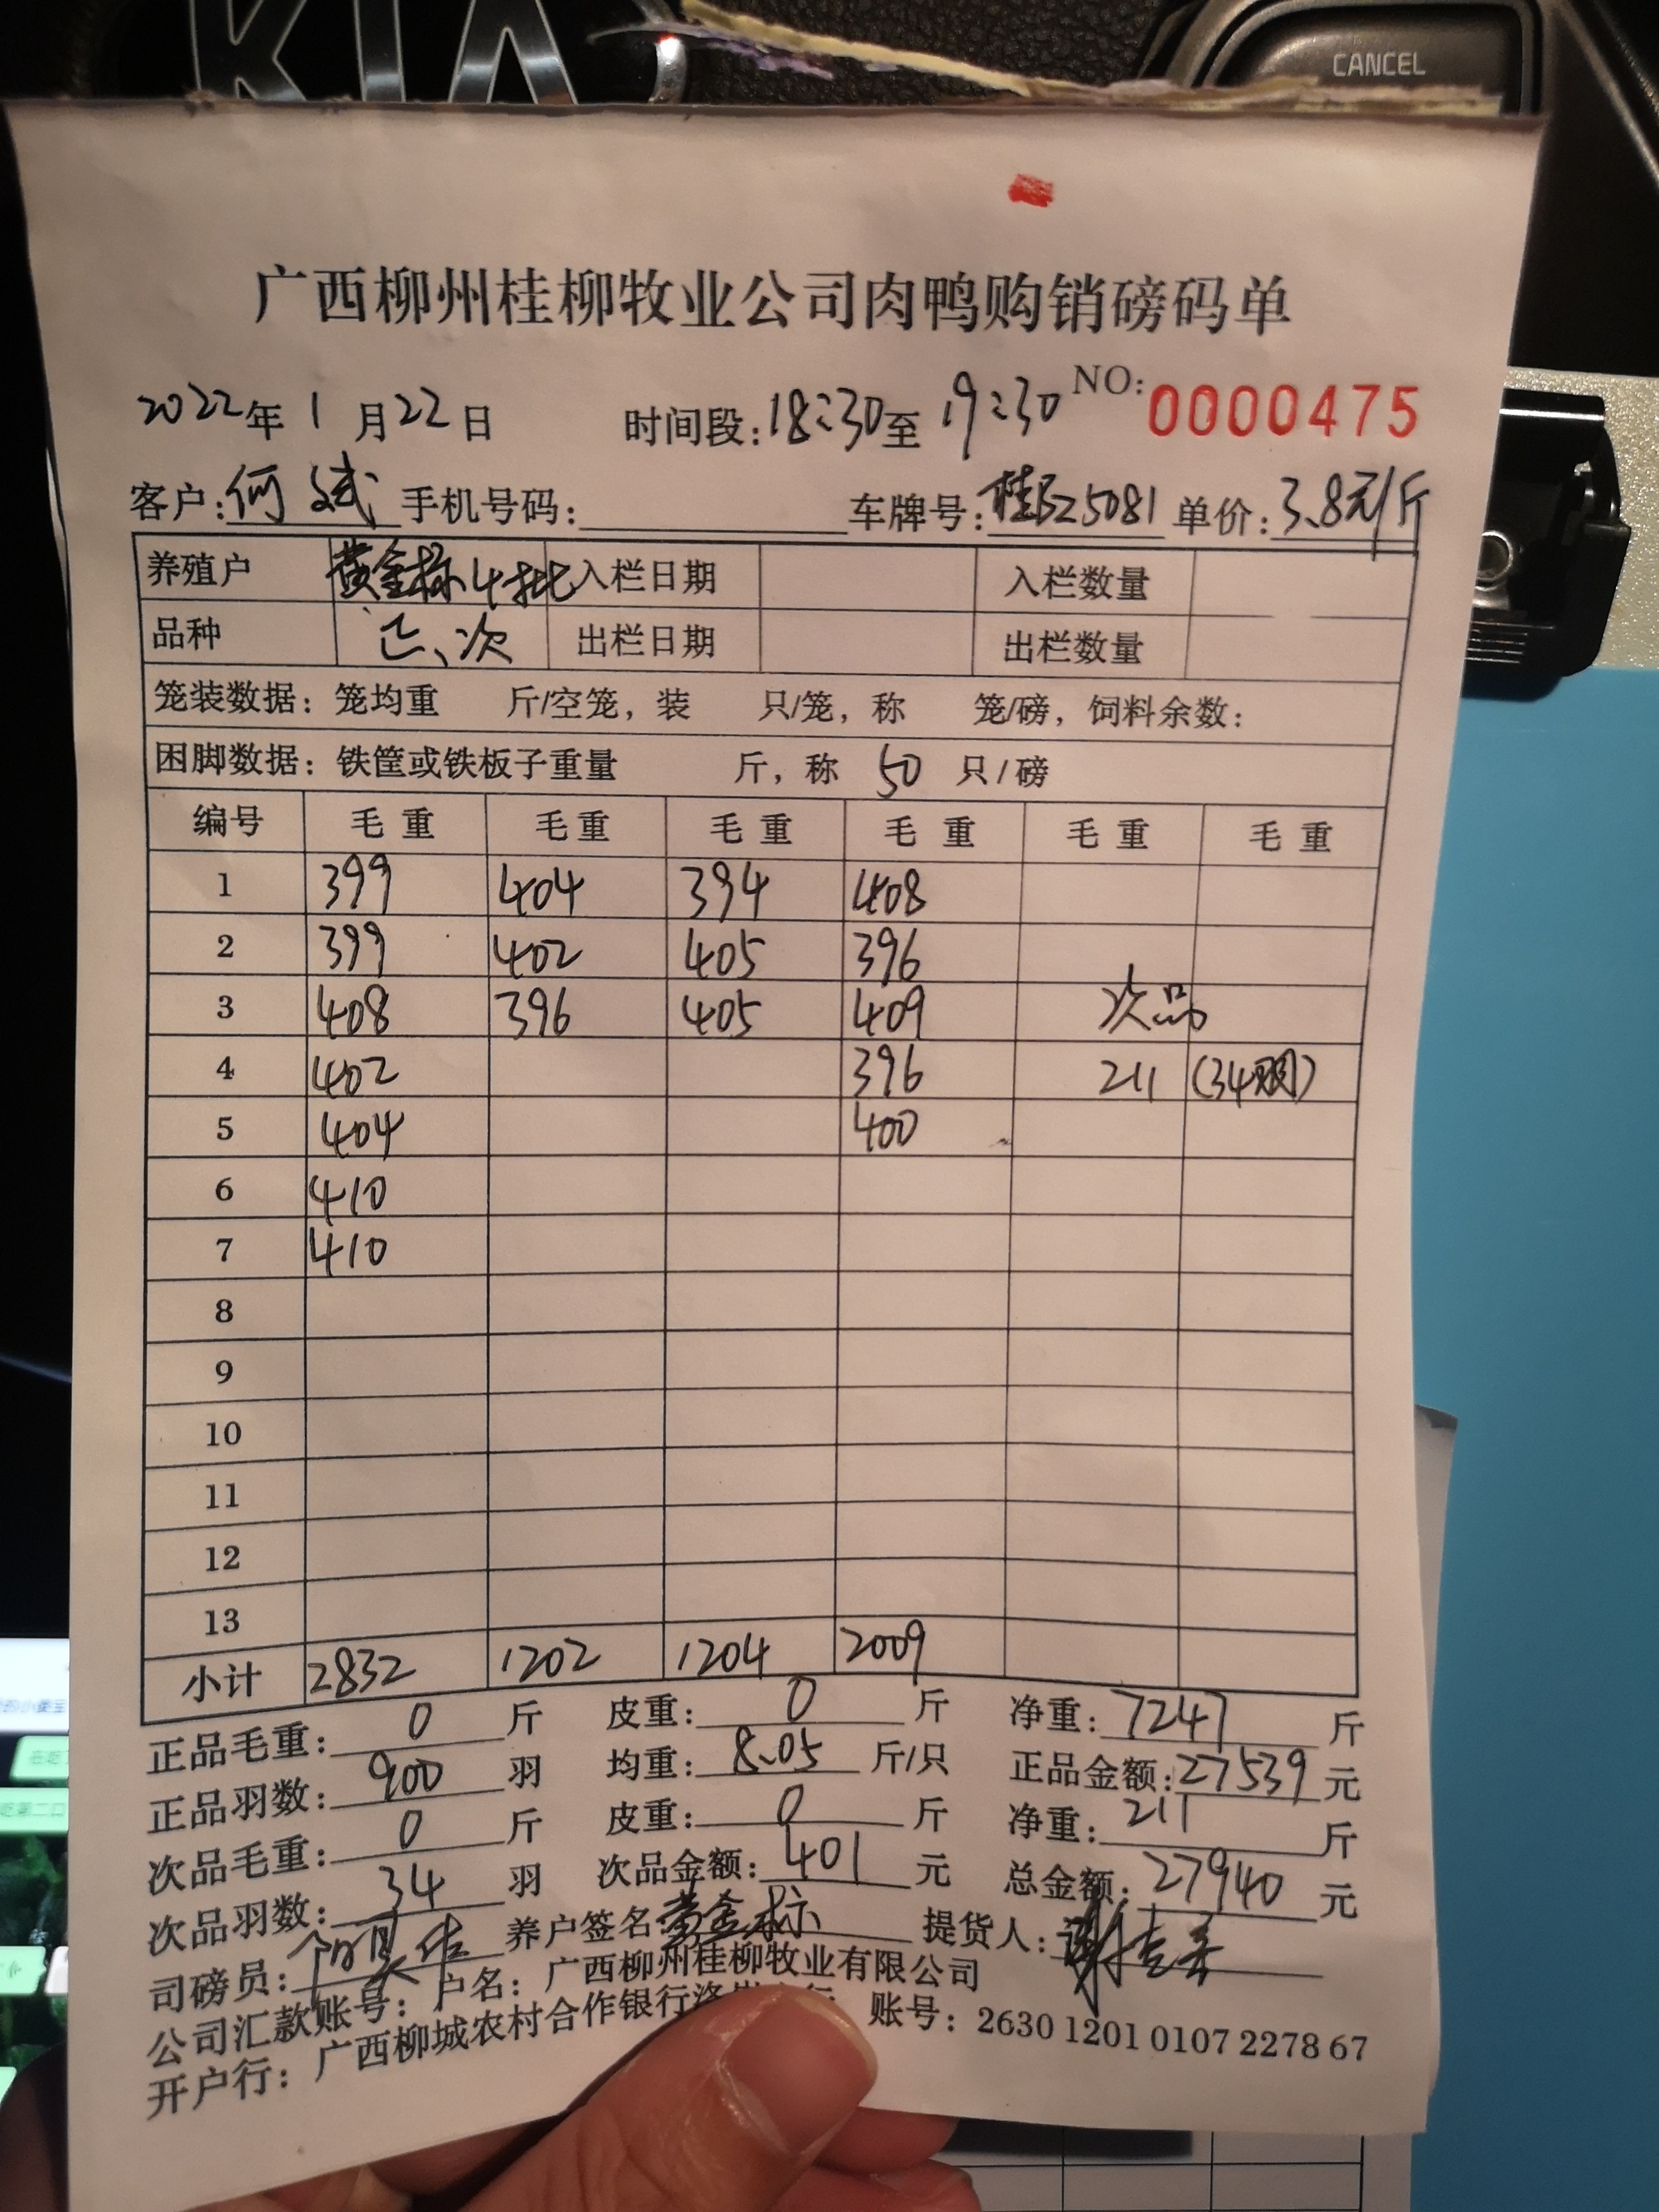 KIA
CANCEL
广西柳州桂柳牧业公司肉鸭购销磅码单
2022年1月22日 时间段:18:30至19:30 NO:0000475
客户:何斌 手机号码: 车牌号:桂BZ5081 单价:3.8元/斤
养殖户 黄金标4批 入栏日期 入栏数量
品种 亡、次 出栏日期 出栏数量
笼装数据：笼均重 斤/空笼，装 只/笼，称 笼/磅，饲料余数：
困脚数据：铁筐或铁板子重量 斤，称 50 只/磅
编号 毛重 毛重 毛重 毛重 毛重 毛重
1 399 404 394 408
2 399 402 405 396
3 408 396 405 409 次品
4 402 396 211 (34羽)
5 404 400
6 410
7 410
8
9
10
11
12
13
小计 2832 1202 1204 2009
正品毛重：0斤 皮重：0斤 净重：7247斤
正品羽数：900羽 均重：8.05斤/只 正品金额：27539元
次品毛重：0斤 皮重：0斤 净重：211斤
次品羽数：34羽 次品金额：401元 总金额：27940元
司磅员： 养户签名:黄金标 提货人：
公司汇款账号：户名：广西柳州桂柳牧业有限公司
开户行：广西柳城农村合作银行 账号：2630 1201 0107 2278 67